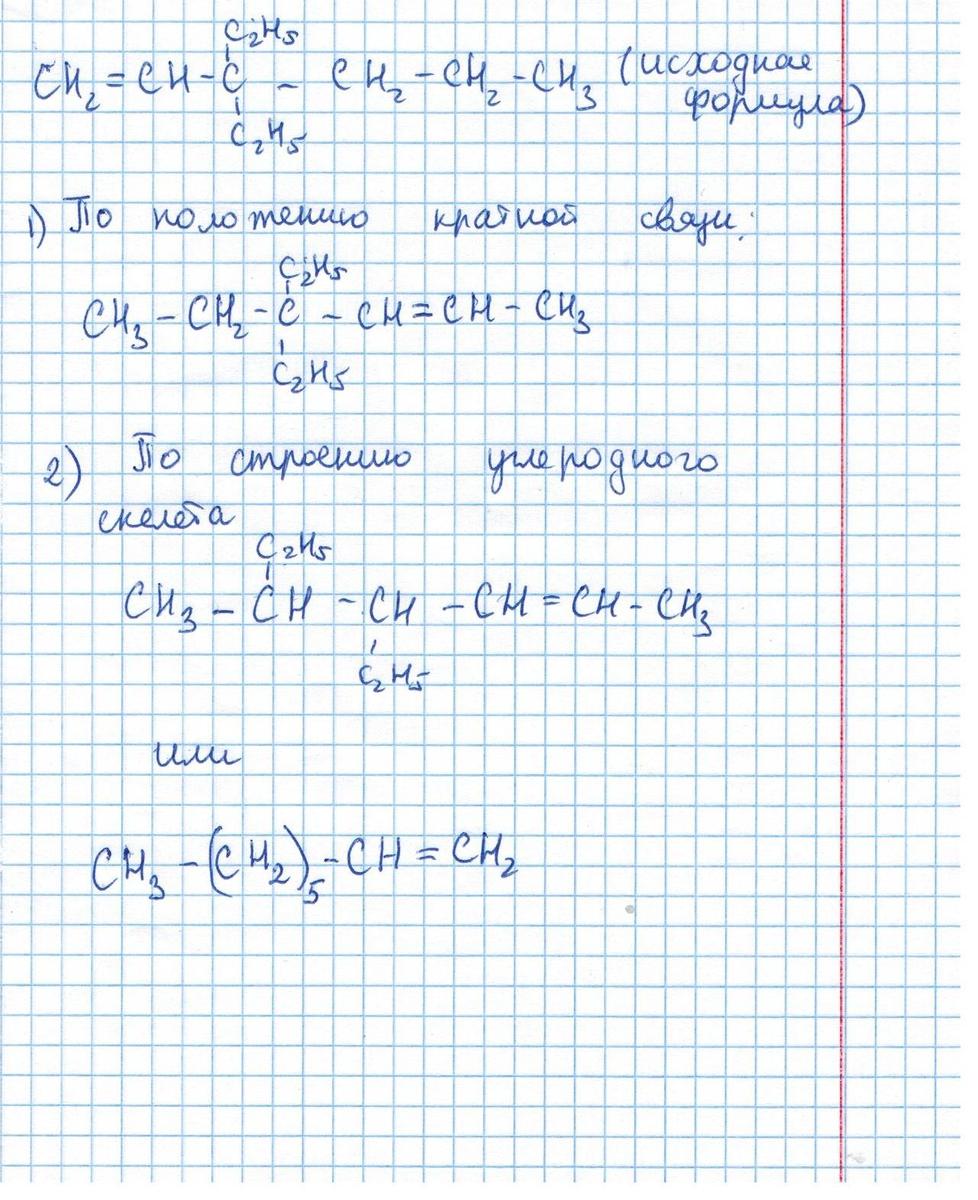 C₂H₅
CH₂=CH-C - CH₂-CH₂-CH₃ (исходная
C₂H₅ формула)
1) По положению кратной связи:
C₂H₅
CH₃-CH₂-C-CH=CH-CH₃
C₂H₅
2) По строению углеродного
скелета
C₂H₅
CH₃-CH-CH-CH=CH-CH₃
C₂H₅
или
CH₃-(CH₂)₅-CH=CH₂